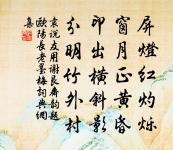 屏燈紅灼爍
窗月正黃昏
印出橫斜影
分明竹外村
袁說友用謝良齋韻題
歐陽長老墨梅詞與綱
集